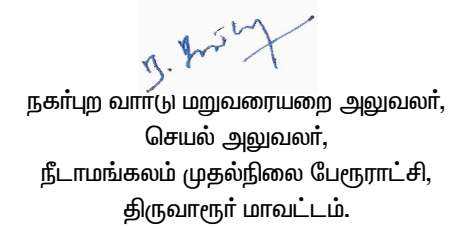 நகர்புற வார்டு மறுவரையறை அலுவலர்,
செயல் அலுவலர்,
நீடாமங்கலம் முதல்நிலை பேரூராட்சி,
திருவாரூர் மாவட்டம்.